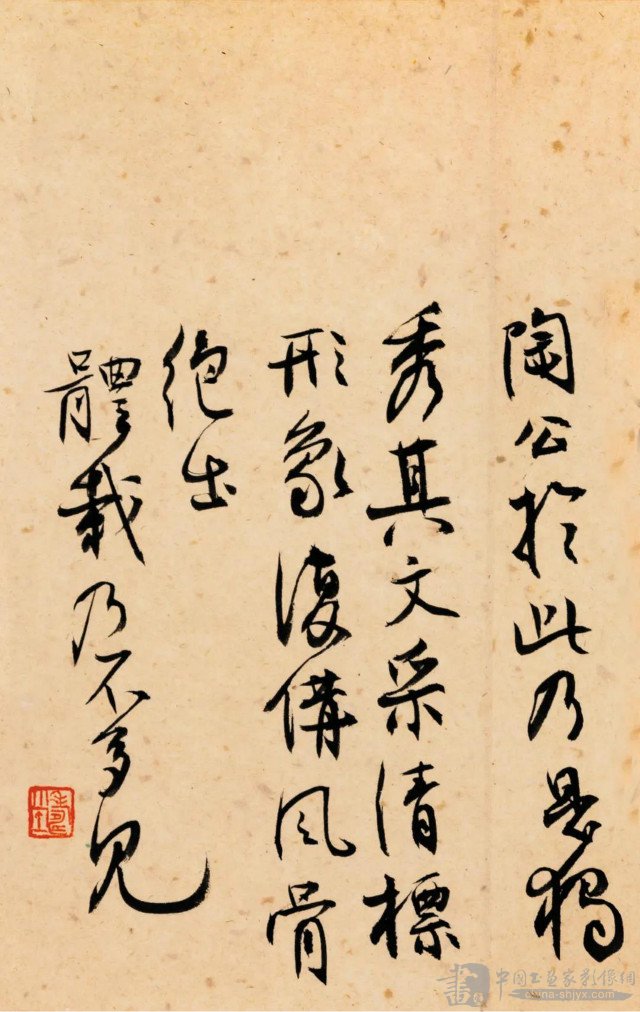 陶公於此乃是獨
秀其文采清標
形象復備風骨
絕出
體裁乃不多見
中国书画家影像網
china-shjyx.com